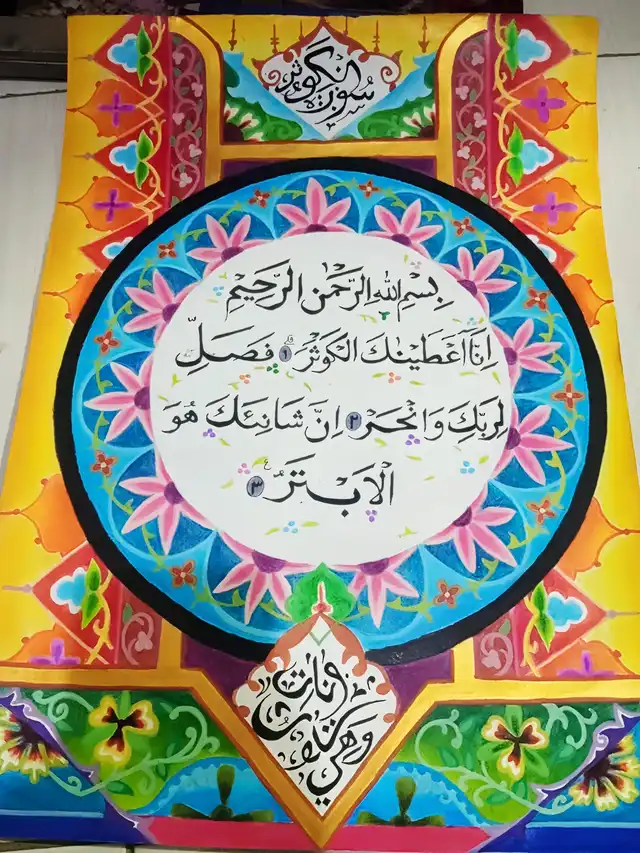 سُوْرَةُ الْكَوْثَرْ
بِسْمِ اللهِ الرَّحْمٰنِ الرَّحِيْمِ
اِنَّا اَعْطَيْنٰكَ الْكَوْثَرَ ۗ ١ فَصَلِّ
لِرَبِّكَ وَانْحَرْ ٢ اِنَّ شَانِئَكَ هُوَ
الْاَبْتَرُ ٣ ࣖ
وَهِيَ ثَلَاثُ اٰيَاتٍ